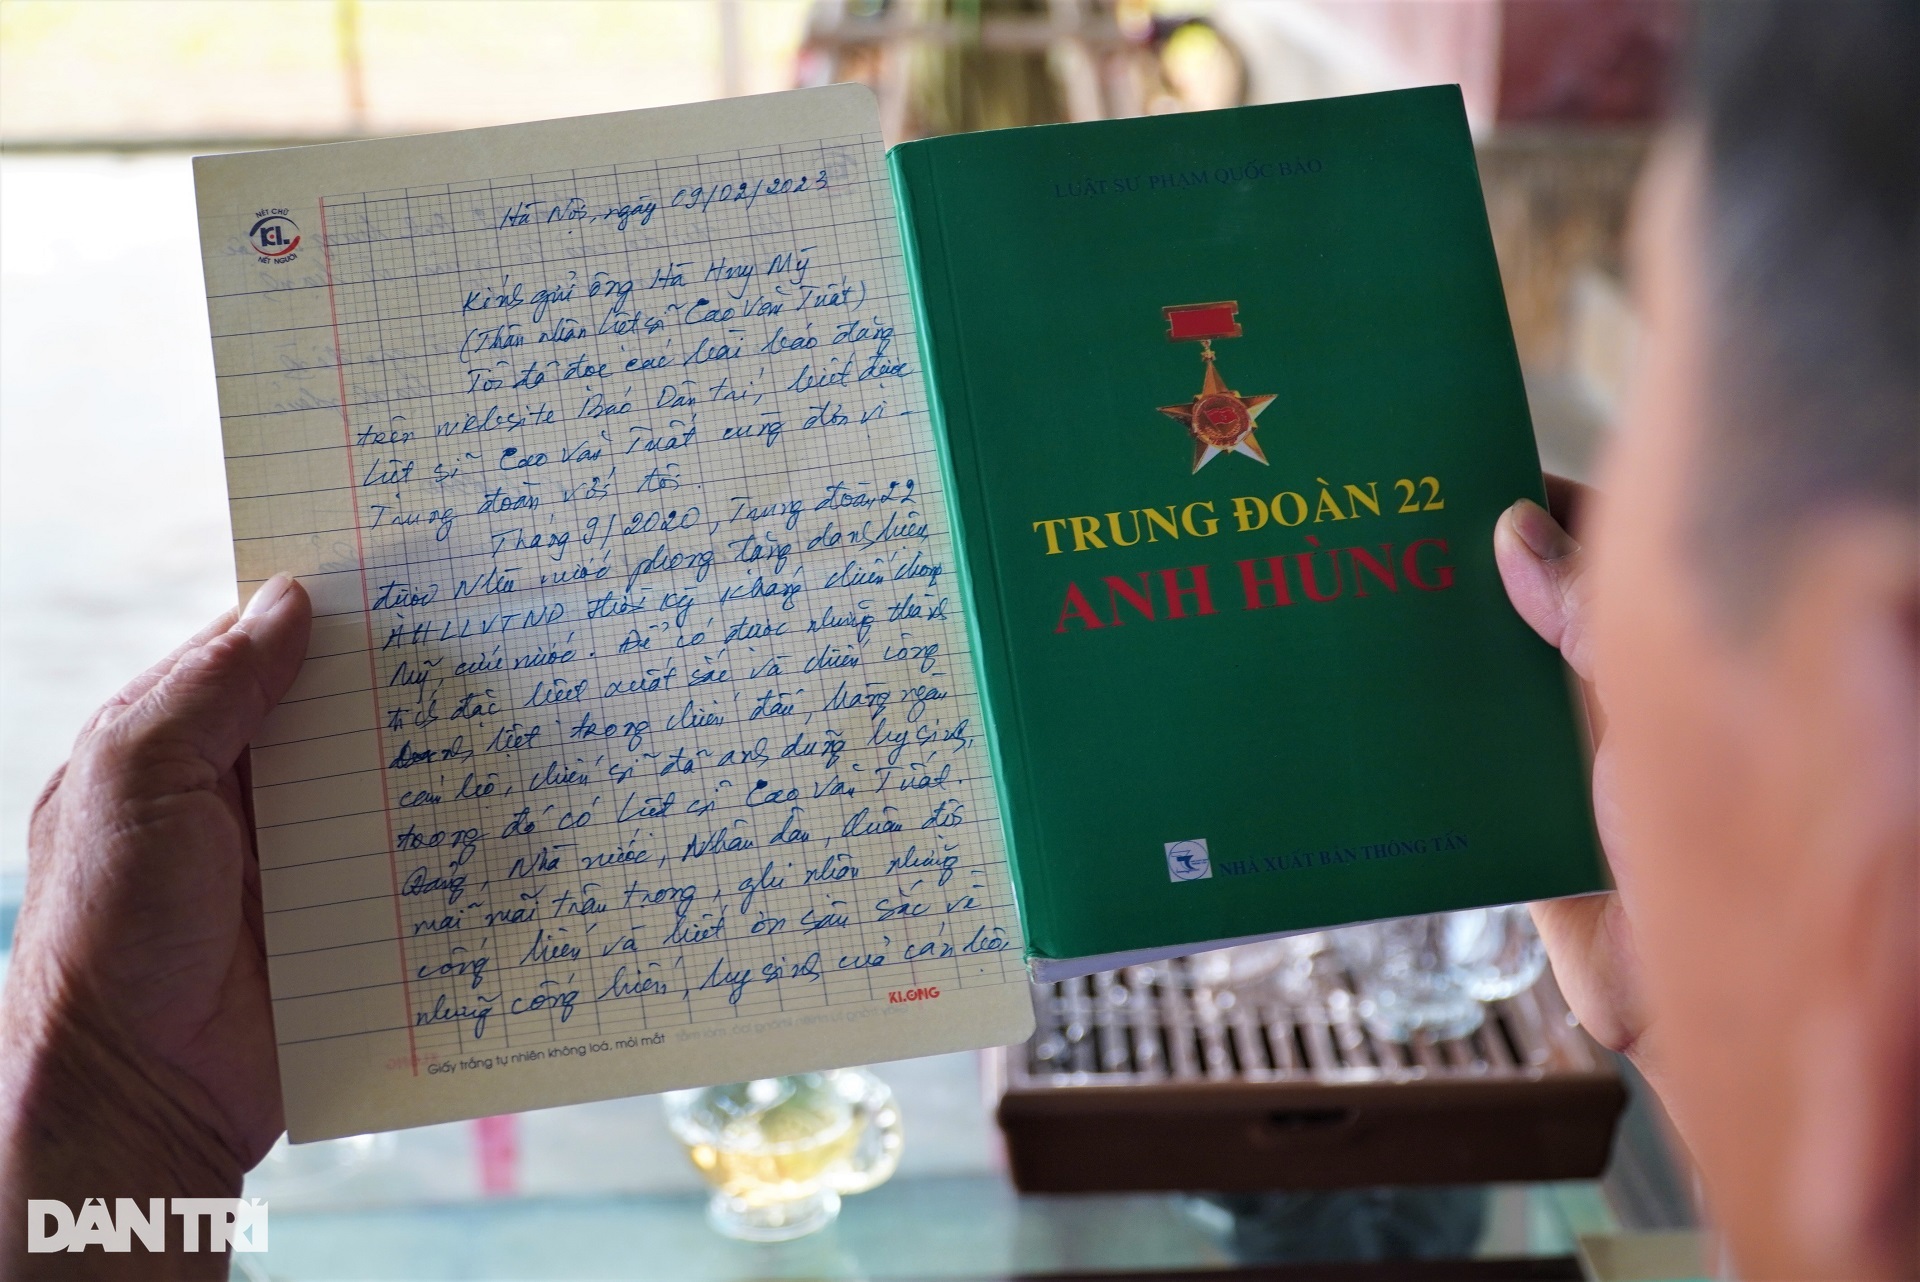 NÉT CHỮ
KL
NẾT NGƯỜI
Hà Nội, ngày 09/02/2023
Kính gửi ông Hà Huy Mỹ
(Thân nhân liệt sĩ Cao Văn Tuất)
Tôi đã đọc các bài báo đăng
trên website Báo Dân trí, biết được
liệt sĩ Cao Văn Tuất cùng đơn vị -
Trung đoàn với tôi.
Tháng 9/2020, Trung đoàn 22
được Nhà nước phong tặng danh hiệu
AHLLVTND thời kỳ kháng chiến chống
Mỹ, cứu nước. Để có được những thành
tích đặc biệt xuất sắc và chiến công
oanh liệt trong chiến đấu, hàng ngàn
cán bộ, chiến sĩ đã anh dũng hy sinh,
trong đó có liệt sĩ Cao Văn Tuất.
Đảng, Nhà nước, Nhân dân, Quân đội
mãi mãi trân trọng, ghi nhận những
cống hiến và biết ơn sâu sắc về
những cống hiến, hy sinh của cán bộ,
KLONG
Giấy trắng tự nhiên không loá, mỏi mắt
LUẬT SƯ PHẠM QUỐC BẢO
TRUNG ĐOÀN 22
ANH HÙNG
NHÀ XUẤT BẢN THÔNG TẤN
DÂN TRÍ